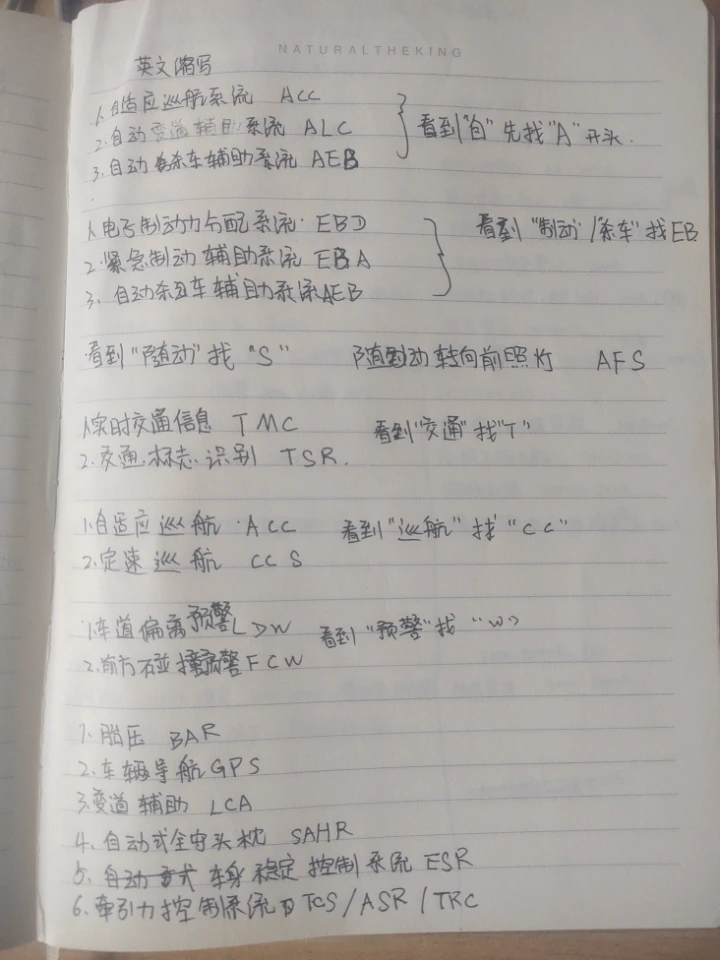 NATURALTHEKING
英文缩写
1.自适应巡航系统 ACC
2.自动变道辅助系统 ALC
3.自动刹车辅助系统 AEB
看到"自"先找"A"开头.
1.电子制动力分配系统. EBD
2.紧急制动辅助系统 EBA
3.自动刹车辅助系统AEB
看到"制动"/"刹车"找EB
看到"随动"找"S" 随动转向前照灯 AFS
1.实时交通信息 TMC 看到"交通"找"T"
2.交通.标志.识别 TSR.
1.自适应巡航.ACC 看到"巡航"找"CC"
2.定速巡航 CCS
1.车道偏离预警LDW 看到"预警"找"W"
2.前方碰撞预警FCW
1.胎压 BAR
2.车辆导航GPS
3.变道辅助 LCA
4.自动式全守头枕 SAHR
5.自动式 车身稳定控制系统 ESR
6.牵引力控制系统 TCS/ASR/TRC